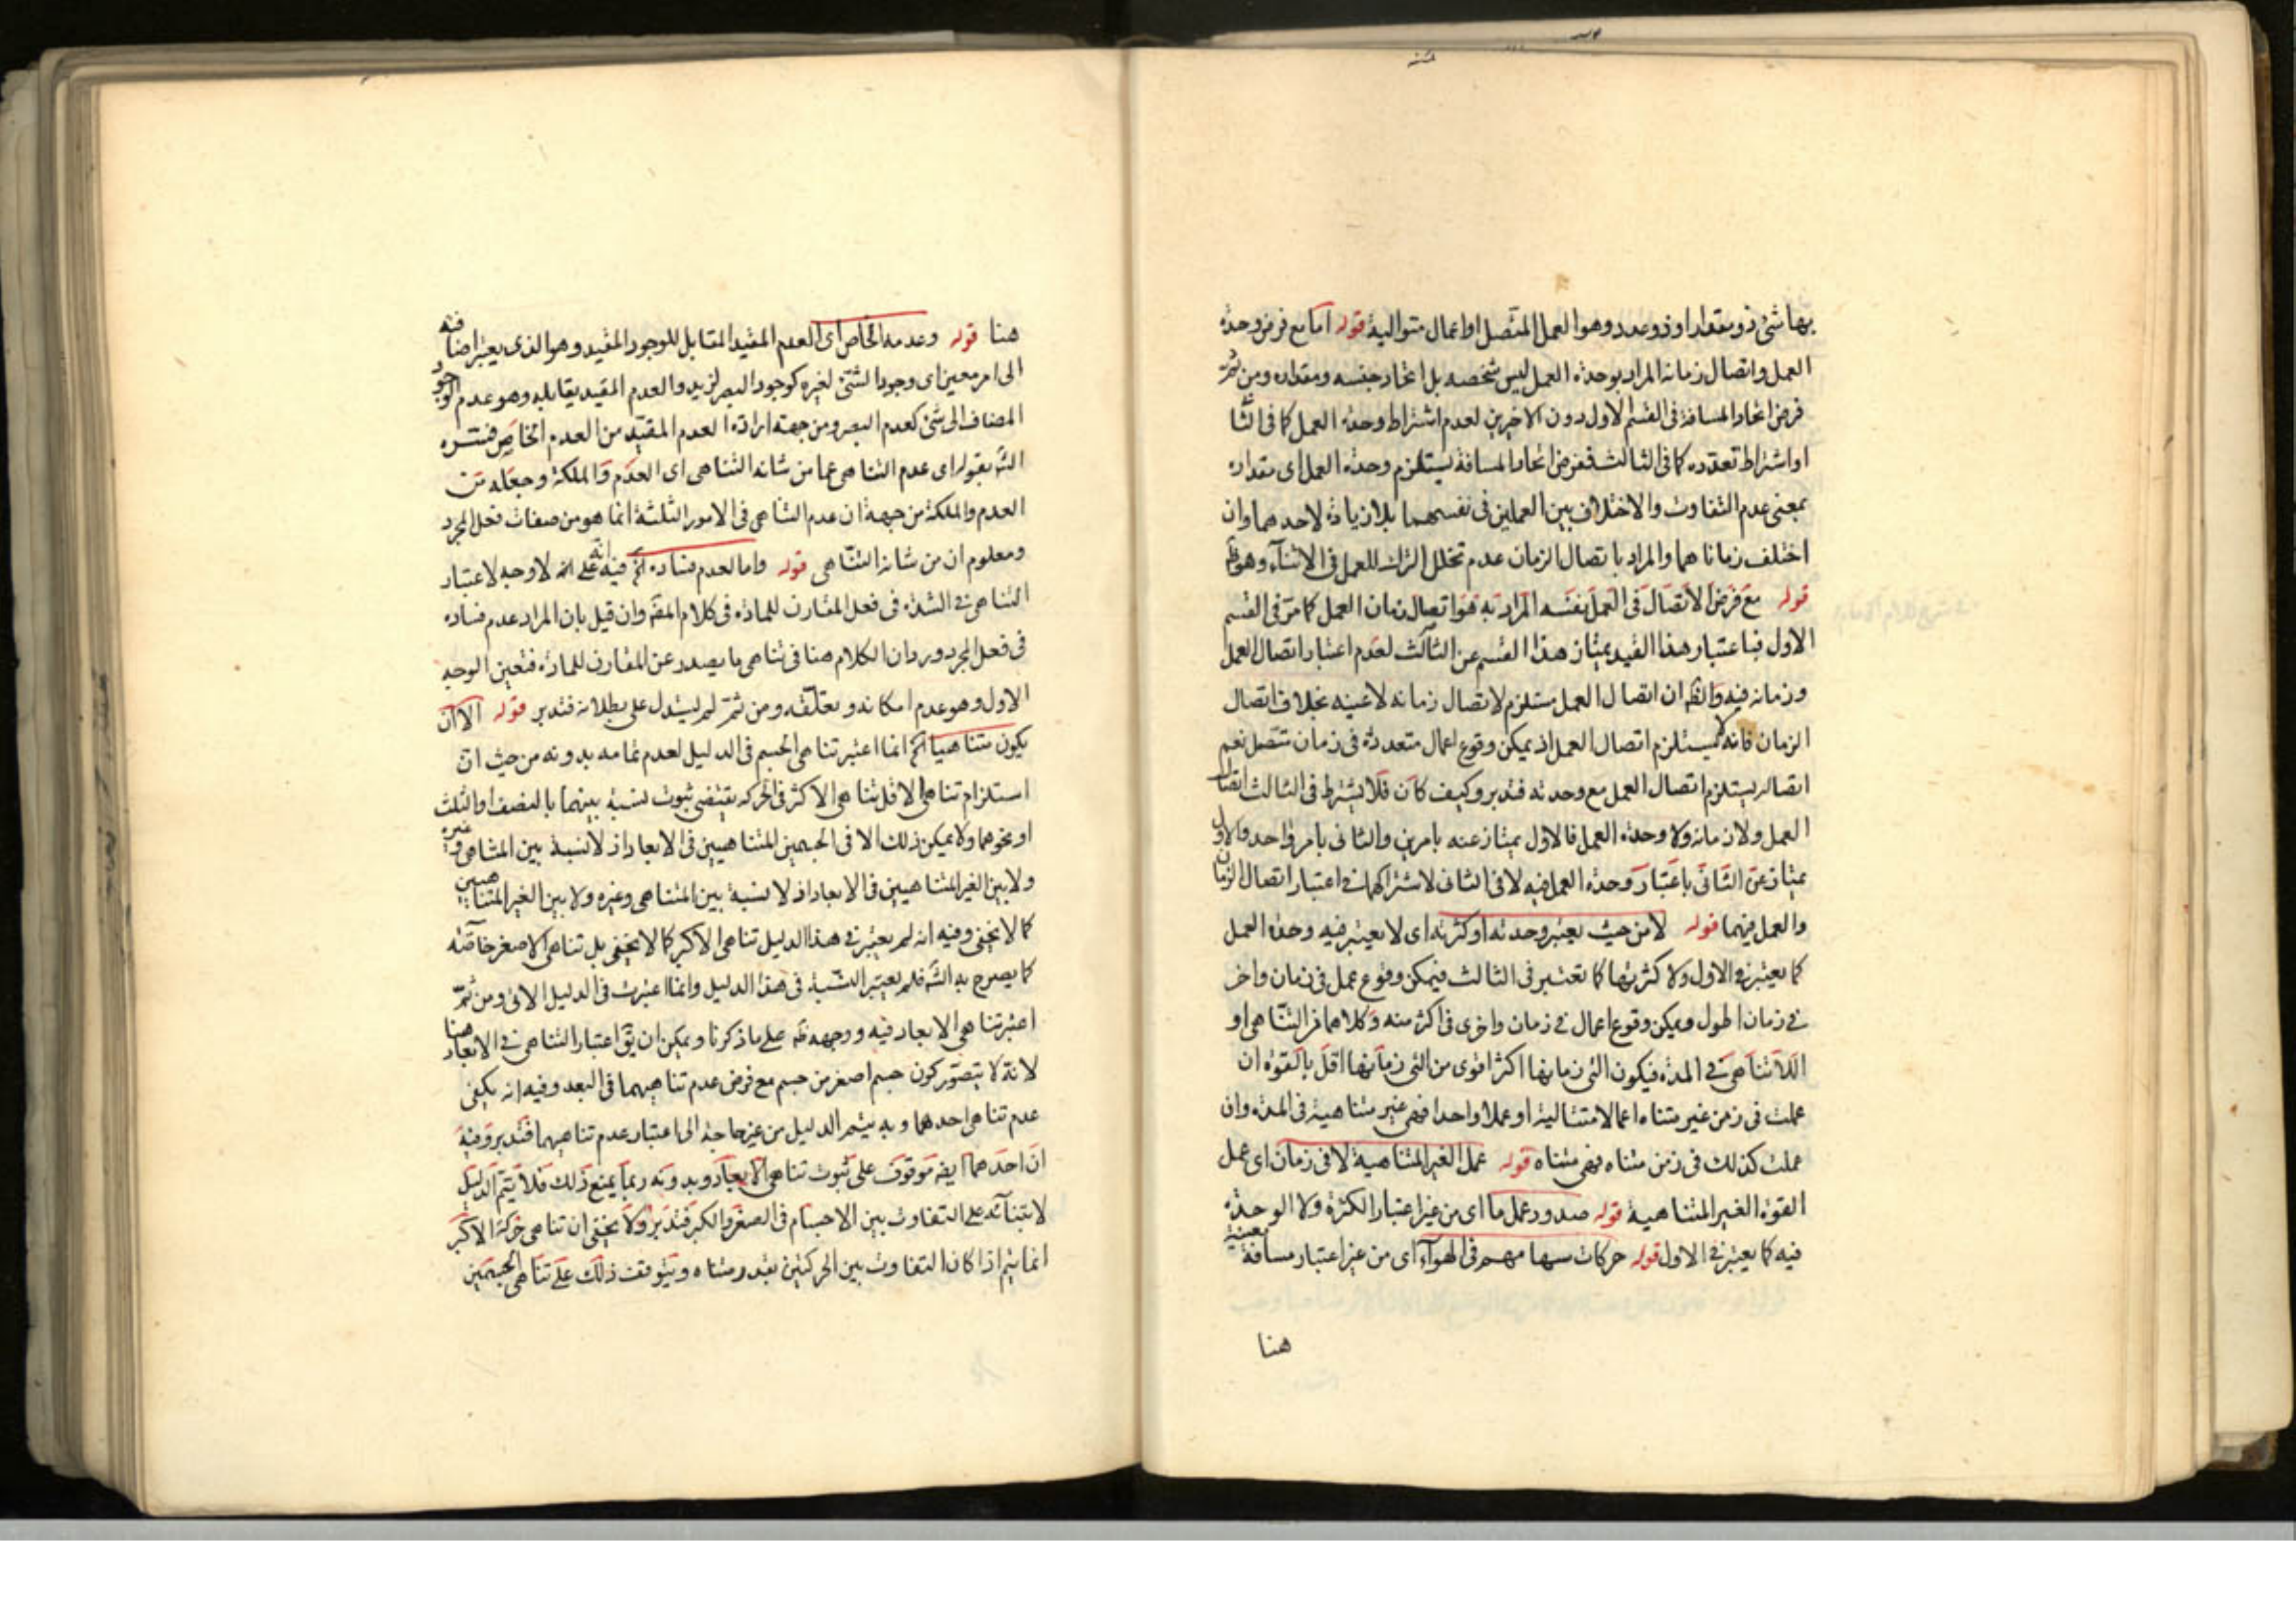 بها شئ ذو مقدار او ذو عدد وهو العمل المتصل او اعمال متوالية قوله اما مع فرض وحدة
العمل واتصال زمانه المراد بوحدة العمل ليس شخصه بل اتحاد جنسه ومقداره ومن ثمّ
فرض اتحاد المسافة فى القسم الاول دون الاخيرين لعدم اشتراط وحدة العمل كما فى الثا
او اشتراط تعدده كما فى الثالث ففرض اتحاد المسافة يستلزم وحدة العمل اى مقداره
بمعنى عدم التفاوت والاختلاف بين العملين فى نفسهما بلا زيادة لاحدهما وان
اختلف زماناهما والمراد باتصال الزمان عدم تخلل الترك للعمل فى الاثناء وهو ظ
قوله مع فرض الاتصال فى العمل نفسه المراد به هو اتصال زمان العمل كما مر فى القسم
الاول فباعتبار هذا القيد يمتاز هذا القسم عن الثالث لعدم اعتبار اتصال العمل
وزمانه فيه والظ ان اتصال العمل مستلزم لاتصال زمانه لا عينه بخلاف اتصال
الزمان فانه لا يستلزم اتصال العمل اذ يمكن وقوع اعمال متعددة فى زمان متصل نعم
اتصاله يستلزم اتصال العمل مع وحدته فتدبر وكيف كان فلا يشترط فى الثالث اتصال
العمل ولا زمانه ولا وحدة العمل فالاول يمتاز عنه بامرين والثانى بامر واحد والاول
يمتاز عن الثانى باعتبار وحدة العمل فيه لا فى الثانى لاشتراكهما فى اعتبار اتصال الزمان
والعمل فيهما قوله لا من حيث يعتبر وحدته او كثرته اى لا يعتبر فيه وحدة العمل
كما يعتبر فى الاول ولا كثرتها كما تعتبر فى الثالث فيمكن وقوع عمل فى زمان واخر
فى زمان اطول ويمكن وقوع اعمال فى زمان واخرى فى اكثر منه وكلاهما فى التناهى او
اللاتناهى فى المدة فيكون التى زمانها اكثر اقوى من التى زمانها اقل بالقوة ان
عملت فى زمن غير متناه اعمالا متتالية او عملا واحدا فهى غير متناهية فى المدة وان
عملت كذلك فى زمن متناه فهى متناه قوله عمل الغير المتناهية لا فى زمان اى عمل
القوة الغير المتناهية قوله صدور عمل ما اى من غير اعتبار الكثرة ولا الوحدة
فيه كما يعتبر فى الاول قوله حركات سهامهم فى الهواء اى من غير اعتبار مسافة معينة
هنا
هنا قوله وعدمه الخاص اى العدم المقيد المقابل للوجود المقيد وهو الذى يعتبر اضافته
الى امر معين اى وجود الشئ لغيره كوجود البصر لزيد والعدم المقيد يقابله وهو عدم الوجود
المضاف الى شئ كعدم البصر ومن جهة ارادة العدم المقيد من العدم الخاص فسره
الش بقوله اى عدم التناهى عما من شانه التناهى اى العدم والملكة وجعله من
العدم والملكة من جهة ان عدم التناهى فى الامور الثلثة انما هو من صفات فعل المجرد
ومعلوم ان من شانه التناهى قوله واما لعدم فساده اه فيه انه على انه لا وجه لاعتبار
التناهى فى الشدة فى فعل المقارن للمادة فى كلام المص وان قيل بان المراد عدم فساده
فى فعل المجرد ورد ان الكلام هنا فى تناهى ما يصدر عن المقارن للمادة فتعين الوجه
الاول وهو عدم امكانه وتعلقه ومن ثمّ لم يستدل على بطلانه فتدبر قوله الا ان
يكون متناهيا اه انما اعتبر تناهى الجسم فى الدليل لعدم تمامه بدونه من حيث ان
استلزام تناهى الاقل تناهى الاكثر فى الحركة يقتضى ثبوت نسبة بينهما بالنصف او الثلث
او نحوهما ولا يمكن ذلك الا فى الجسمين المتناهيين فى الابعاد اذ لا نسبة بين المتناهى وغيره
ولا بين الغير المتناهيين فى الابعاد اذ لا نسبة بين المتناهى وغيره ولا بين الغير المتناهيين
كما لا يخفى وفيه انه لم يعتبر فى هذا الدليل تناهى الاكبر كما لا يخفى بل تناهى الاصغر خاصة
كما يصرح به الش فلم يعتبر النسبة فى هذا الدليل وانما اعتبرت فى الدليل الاتى ومن ثمّ
اعتبر تناهى الابعاد فيه ووجهه ظ على ما ذكرنا ويمكن ان يق اعتبار التناهى فى الابعاد هنا
لانه لا يتصور كون جسم اصغر من جسم مع فرض عدم تناهيهما فى البعد وفيه انه يكفى
عدم تناهى احدهما وبه يتم الدليل من غير حاجة الى اعتبار عدم تناهيهما فتدبر وفيه
ان احدهما ايضه موقوف على ثبوت تناهى الابعاد وبدونه ربما يمنع ذلك فلا يتم الدليل
لابتنائه على التفاوت بين الاجسام فى الصغر والكبر فتدبر ولا يخفى ان تناهى حركة الاكبر
انما يتم اذا كان التفاوت بين الحركتين بقدر متناه ويتوقف ذلك على تناهى الجسمين